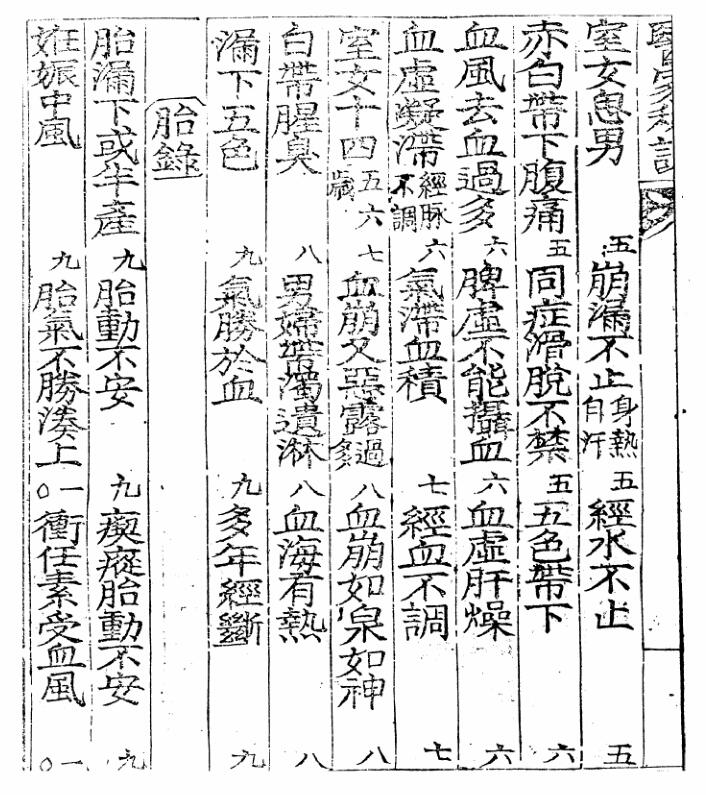 室女思男 五 崩漏不止 身熱自汗 五 經水不止 五
赤白帶下腹痛 五 同症滑脫不禁 五 五色帶下 六
血風去血過多 六 脾虛不能攝血 六 血虛肝燥 六
血虛凝滯 經脉不調 六 氣滯血積 七 經血不調 七
室女十四五六歲 七 血崩又惡露過多 八 血崩如泉如神 八
白帶腥臭 八 男婦帶濁遺淋 八 血海有熱 八
漏下五色 九 氣勝於血 九 多年經斷 九
胎錄
胎漏下或半產 九 胎動不安 九 瘈瘲胎動不安 九
姙娠中風 九 胎氣不勝湊上 一〇 衝任素受血風 一〇